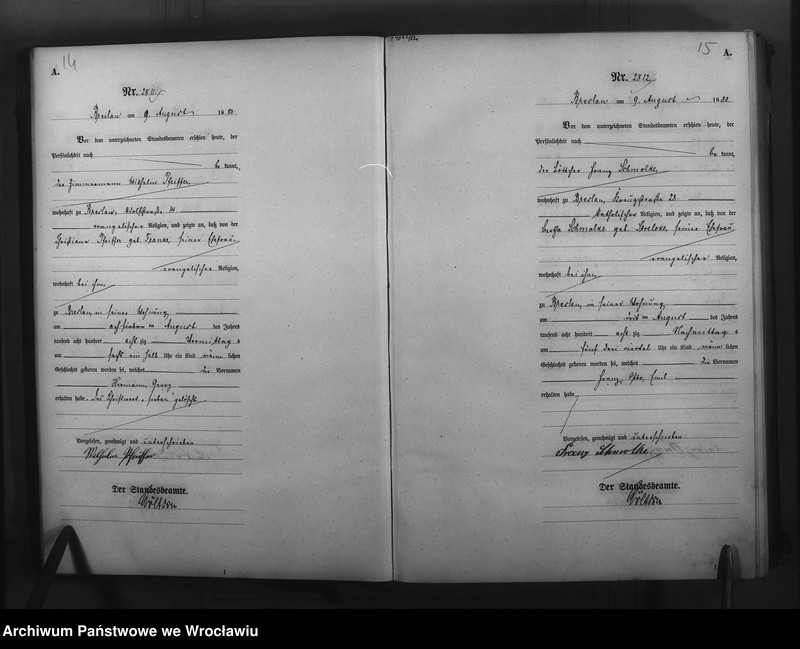 14
A.
Nr. 2811
Breslau am 9. August 1880
Vor dem unterzeichneten Standesbeamten erschien heute, der
Persönlichkeit nach
be kannt,
der Zimmermann Wilhelm Pfeiffer,
wohnhaft zu Breslau, Adolfstraße 14
evangelischer Religion, und zeigte an, daß von der
Christiane Pfeiffer geb. Franke, seiner Ehefrau
evangelischer Religion,
wohnhaft bei ihm
zu Breslau, in seiner Wohnung,
am August des Jahres
tausend acht hundert acht zig Vormittag s
um sechs ein halb Uhr ein Kind männ lichen
Geschlechts geboren worden sei, welches die Vornamen
Hermann, Georg
erhalten habe. Das Druckwort "gelöscht.
Vorgelesen, genehmigt und unterschrieben
Wilhelm Pfeiffer
Der Standesbeamte.
15
A.
Nr. 2812
Breslau am 9. August 1880
Vor dem unterzeichneten Standesbeamten erschien heute, der
Persönlichkeit nach
be kannt,
der Böttcher Franz Schmolke,
wohnhaft zu Breslau, Kreuzstraße 28
katholischer Religion, und zeigte an, daß von der
Bertha Schmolke geb. seiner Ehefrau
evangelischer Religion,
wohnhaft bei ihm
zu Breslau, in seiner Wohnung,
am August des Jahres
tausend acht hundert acht zig Nachmittag s
um fünf drei viertel Uhr ein Kind männ lichen
Geschlechts geboren worden sei, welches die Vornamen
Franz, Otto, Emil
erhalten habe.
Vorgelesen, genehmigt und unterschrieben
Franz Schmolke
Der Standesbeamte.
Archiwum Państwowe we Wrocławiu